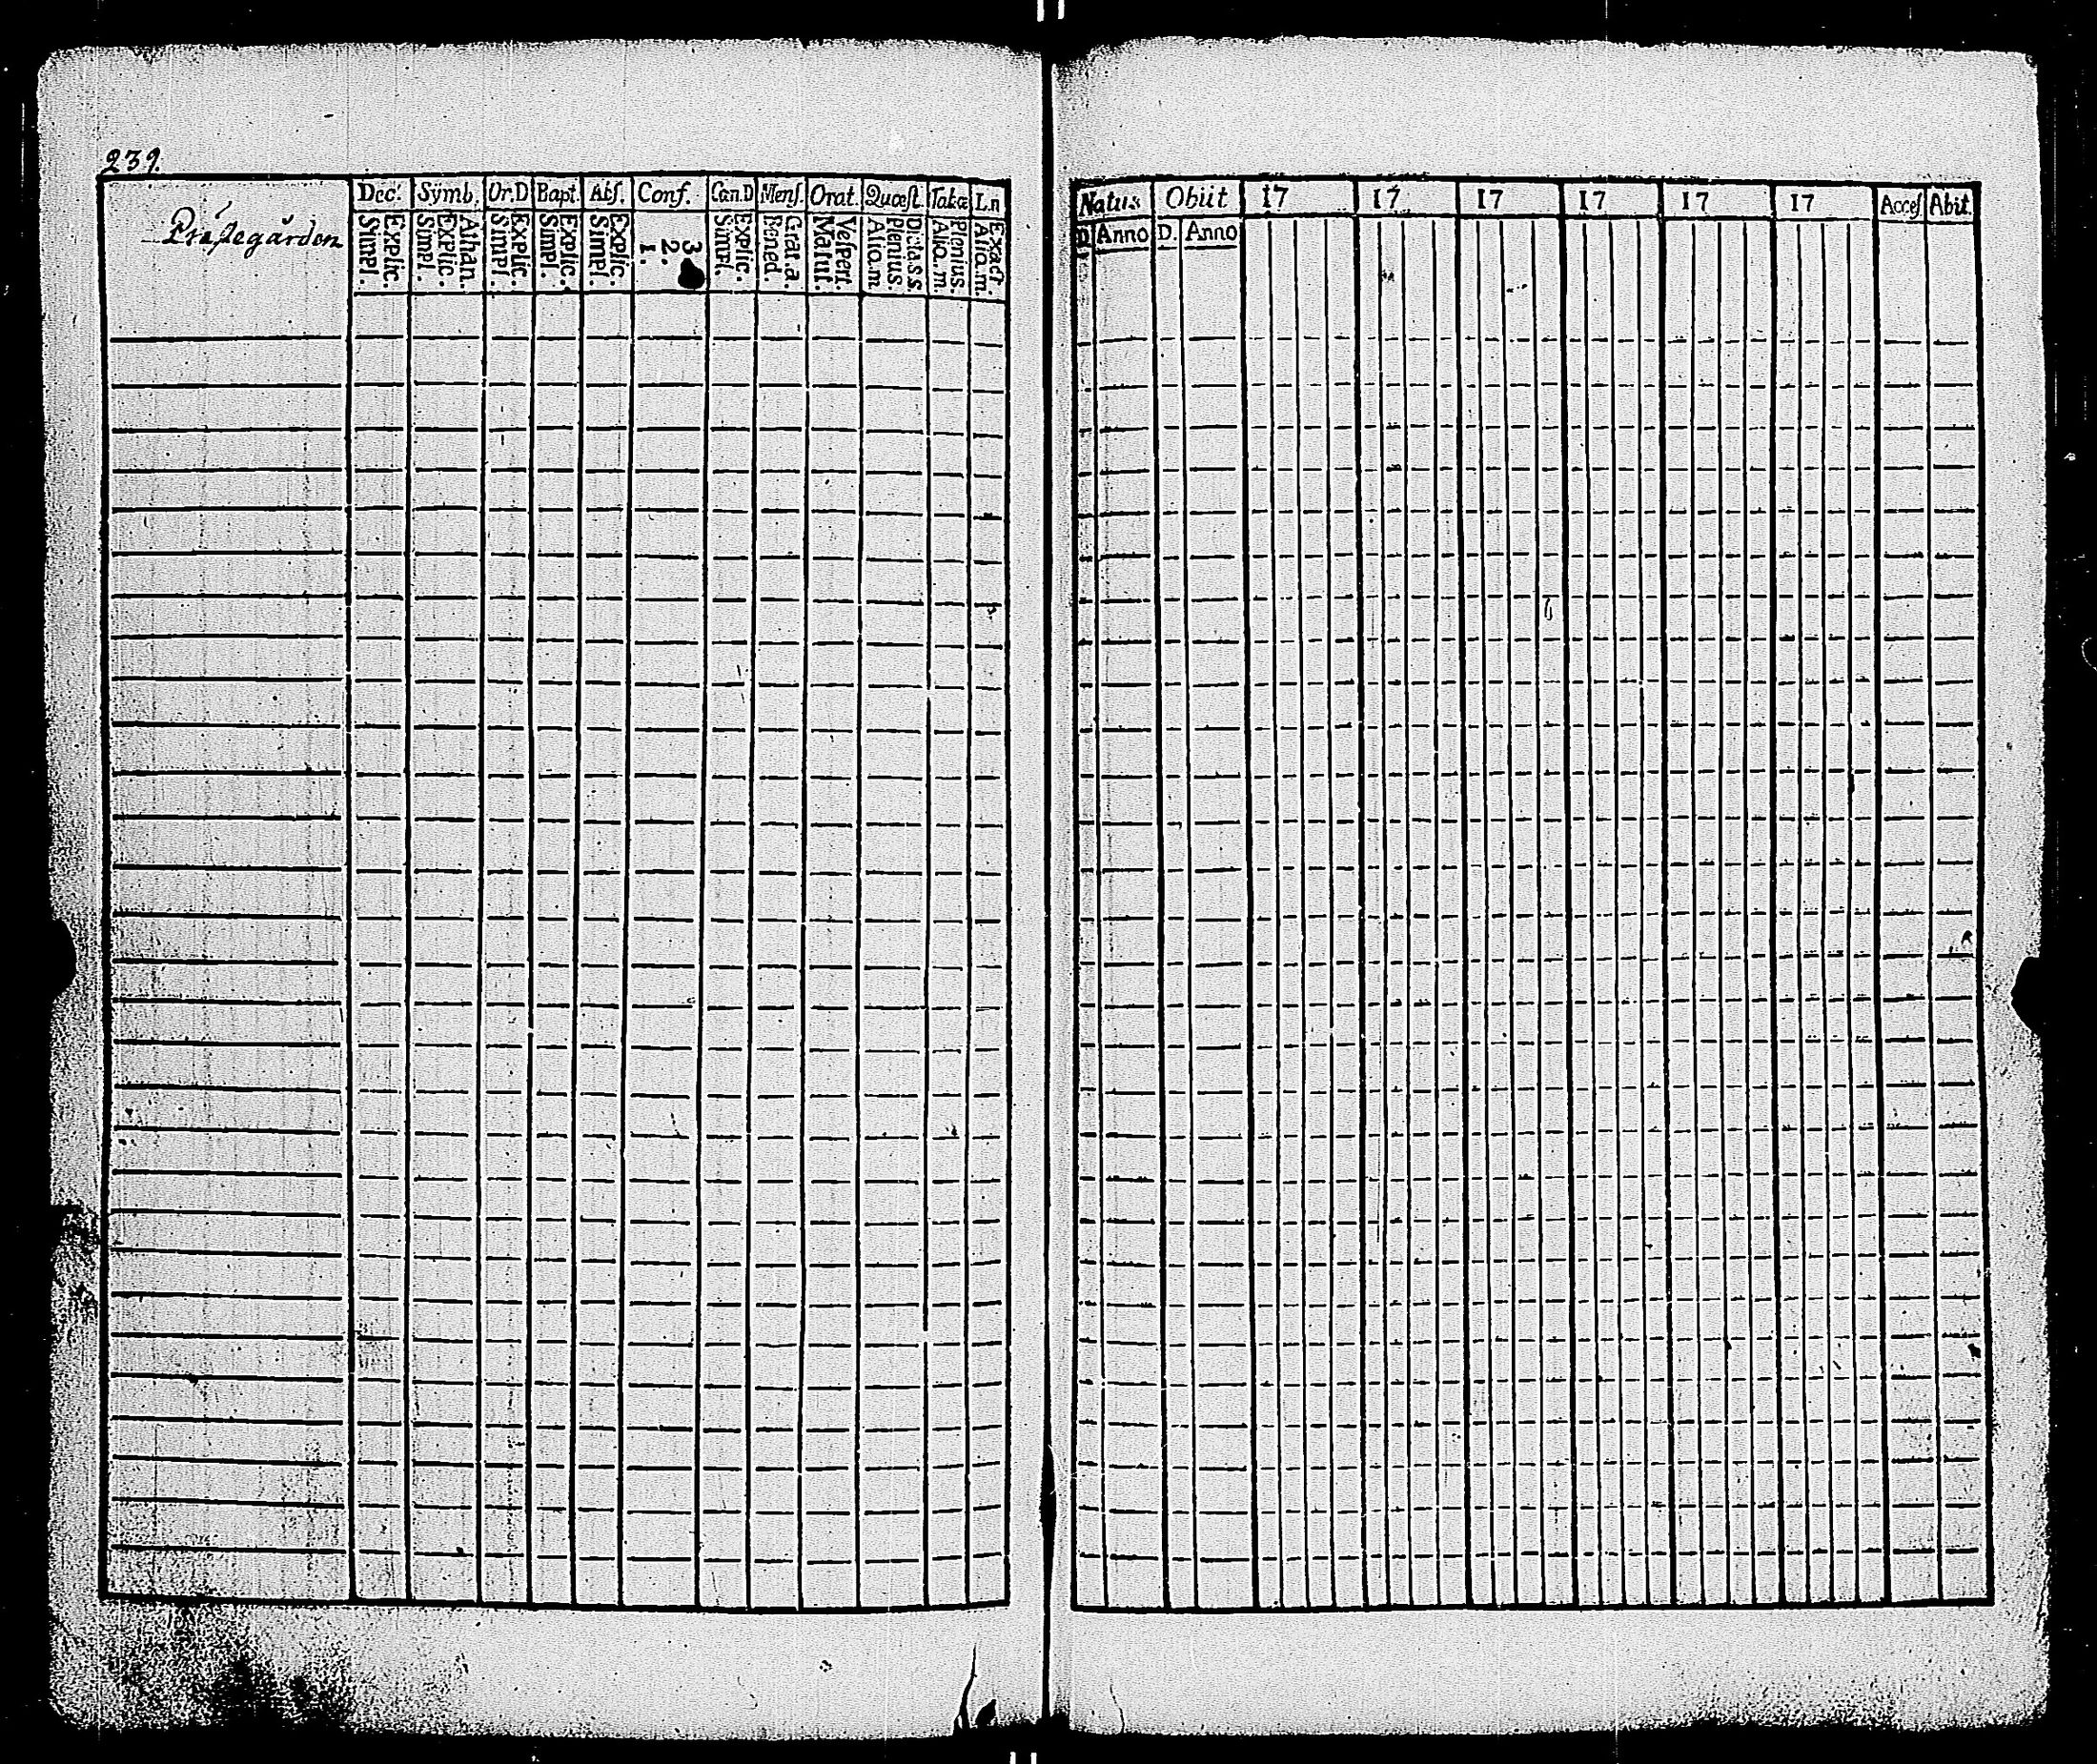 239.
Prästegården
Dec. Symb. Or.D Bapt. Abs. Conf. Cœn.D Mens. Orat. Quæst. Tab.œ L.n
Simpl. Explic. Simpl. Explic. Athan. Simpl. Explic. Simpl. Explic. Simpl. Explic. 1. 2. 3 Simpl. Explic. Bened. Grat.a. Matut. Vespert. Aliq.m Plenius. Dicta.s.s Aliq.m Plenius. Aliq.m. Exact.
Natus Obiit 17 17 17 17 17 17 Acces Abit.
D Anno D. Anno